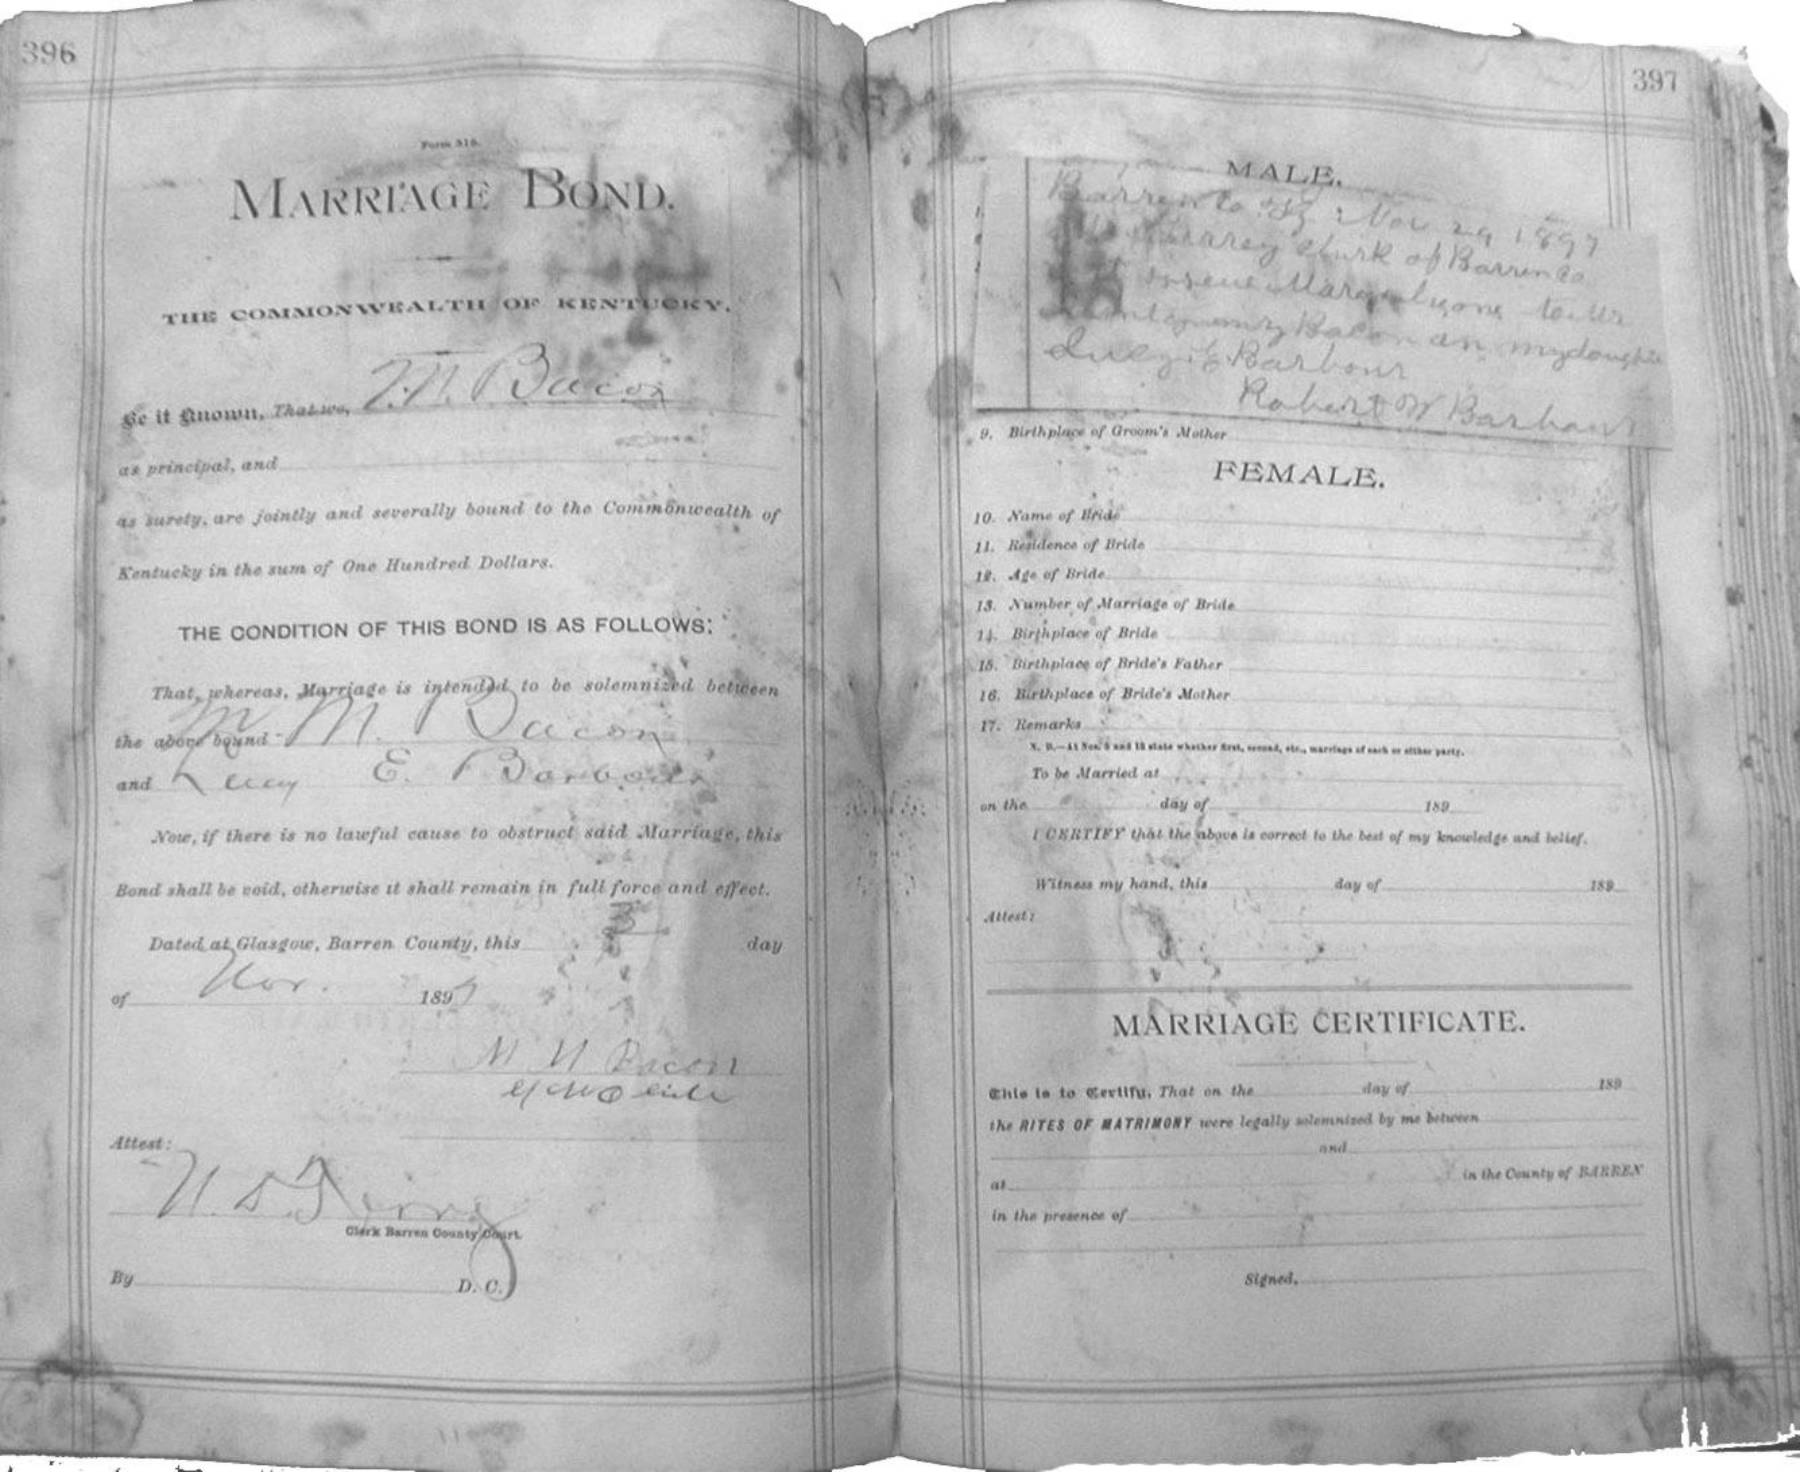 396
Form 316.
MARRIAGE BOND.
THE COMMONWEALTH OF KENTUCKY.
Be it Known, That we, Bacon
as principal, and
as surety, are jointly and severally bound to the Commonwealth of
Kentucky in the sum of One Hundred Dollars.
THE CONDITION OF THIS BOND IS AS FOLLOWS:
That, whereas, Marriage is intended to be solemnized between
the above bound M. Bacon
and Lucy E. Barbour
Now, if there is no lawful cause to obstruct said Marriage, this
Bond shall be void, otherwise it shall remain in full force and effect.
Dated at Glasgow, Barren County, this 3 day
of Nov. 1897
Bacon
Attest:
Clerk Barren County Court.
By D. C.
397
MALE.
Barren Co Ky Nov 29 1897
clurk of Barren Co
Bacon an my daughter
E Barbour
Robert W Barbour
9. Birthplace of Groom's Mother
FEMALE.
10. Name of Bride
11. Residence of Bride
12. Age of Bride
13. Number of Marriage of Bride
14. Birthplace of Bride
15. Birthplace of Bride's Father
16. Birthplace of Bride's Mother
17. Remarks
N. B.—At Nos. 5 and 13 state whether first, second, etc., marriage of each or either party.
To be Married at
on the day of 189
I CERTIFY that the above is correct to the best of my knowledge and belief.
Witness my hand, this day of 189
Attest:
MARRIAGE CERTIFICATE.
This is to Certify, That on the day of 189
the RITES OF MATRIMONY were legally solemnized by me between
and
at in the County of BARREN
in the presence of
Signed,